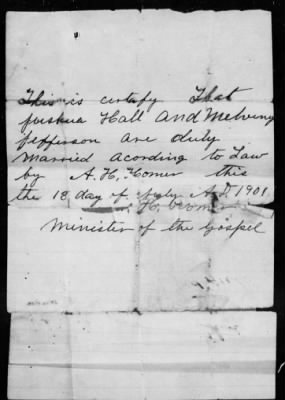 This is certify That
Joshua Hall And Melviny
Jefferson are duly
Married Acording to Law
by A. H. Homer this
the 18 day of July A.D. 1901
A. H. Homer
Minister of the Gospel